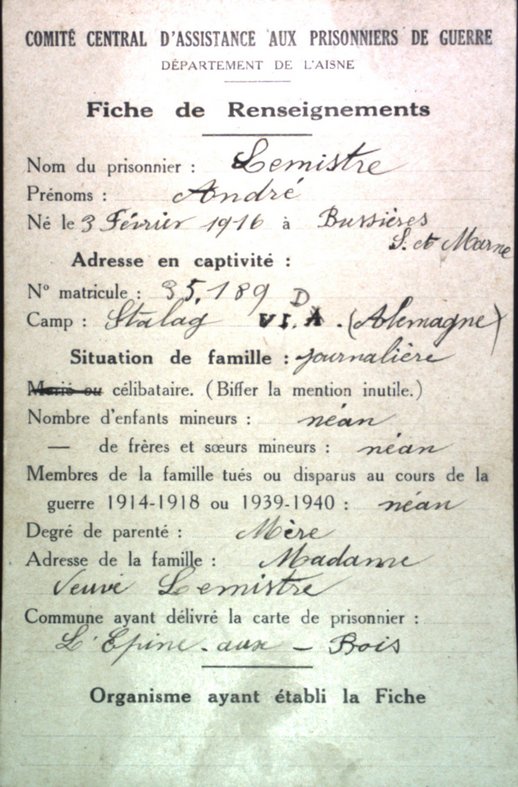 COMITÉ CENTRAL D'ASSISTANCE AUX PRISONNIERS DE GUERRE
DÉPARTEMENT DE L'AISNE
Fiche de Renseignements
Nom du prisonnier : Lemistre
Prénoms : André
Né le 3 Février 1916 à Bussières
S. et Marne
Adresse en captivité :
N° matricule : 35.189
Camp : Stalag VI. A D. (Alemagne)
Situation de famille : journalière
Marié ou célibataire. (Biffer la mention inutile.)
Nombre d'enfants mineurs : néan
— de frères et sœurs mineurs : néan
Membres de la famille tués ou disparus au cours de la
guerre 1914-1918 ou 1939-1940 : néan
Degré de parenté : Mère
Adresse de la famille : Madame
Veuve Lemistre
Commune ayant délivré la carte de prisonnier :
L'Epine-aux-Bois
Organisme ayant établi la Fiche